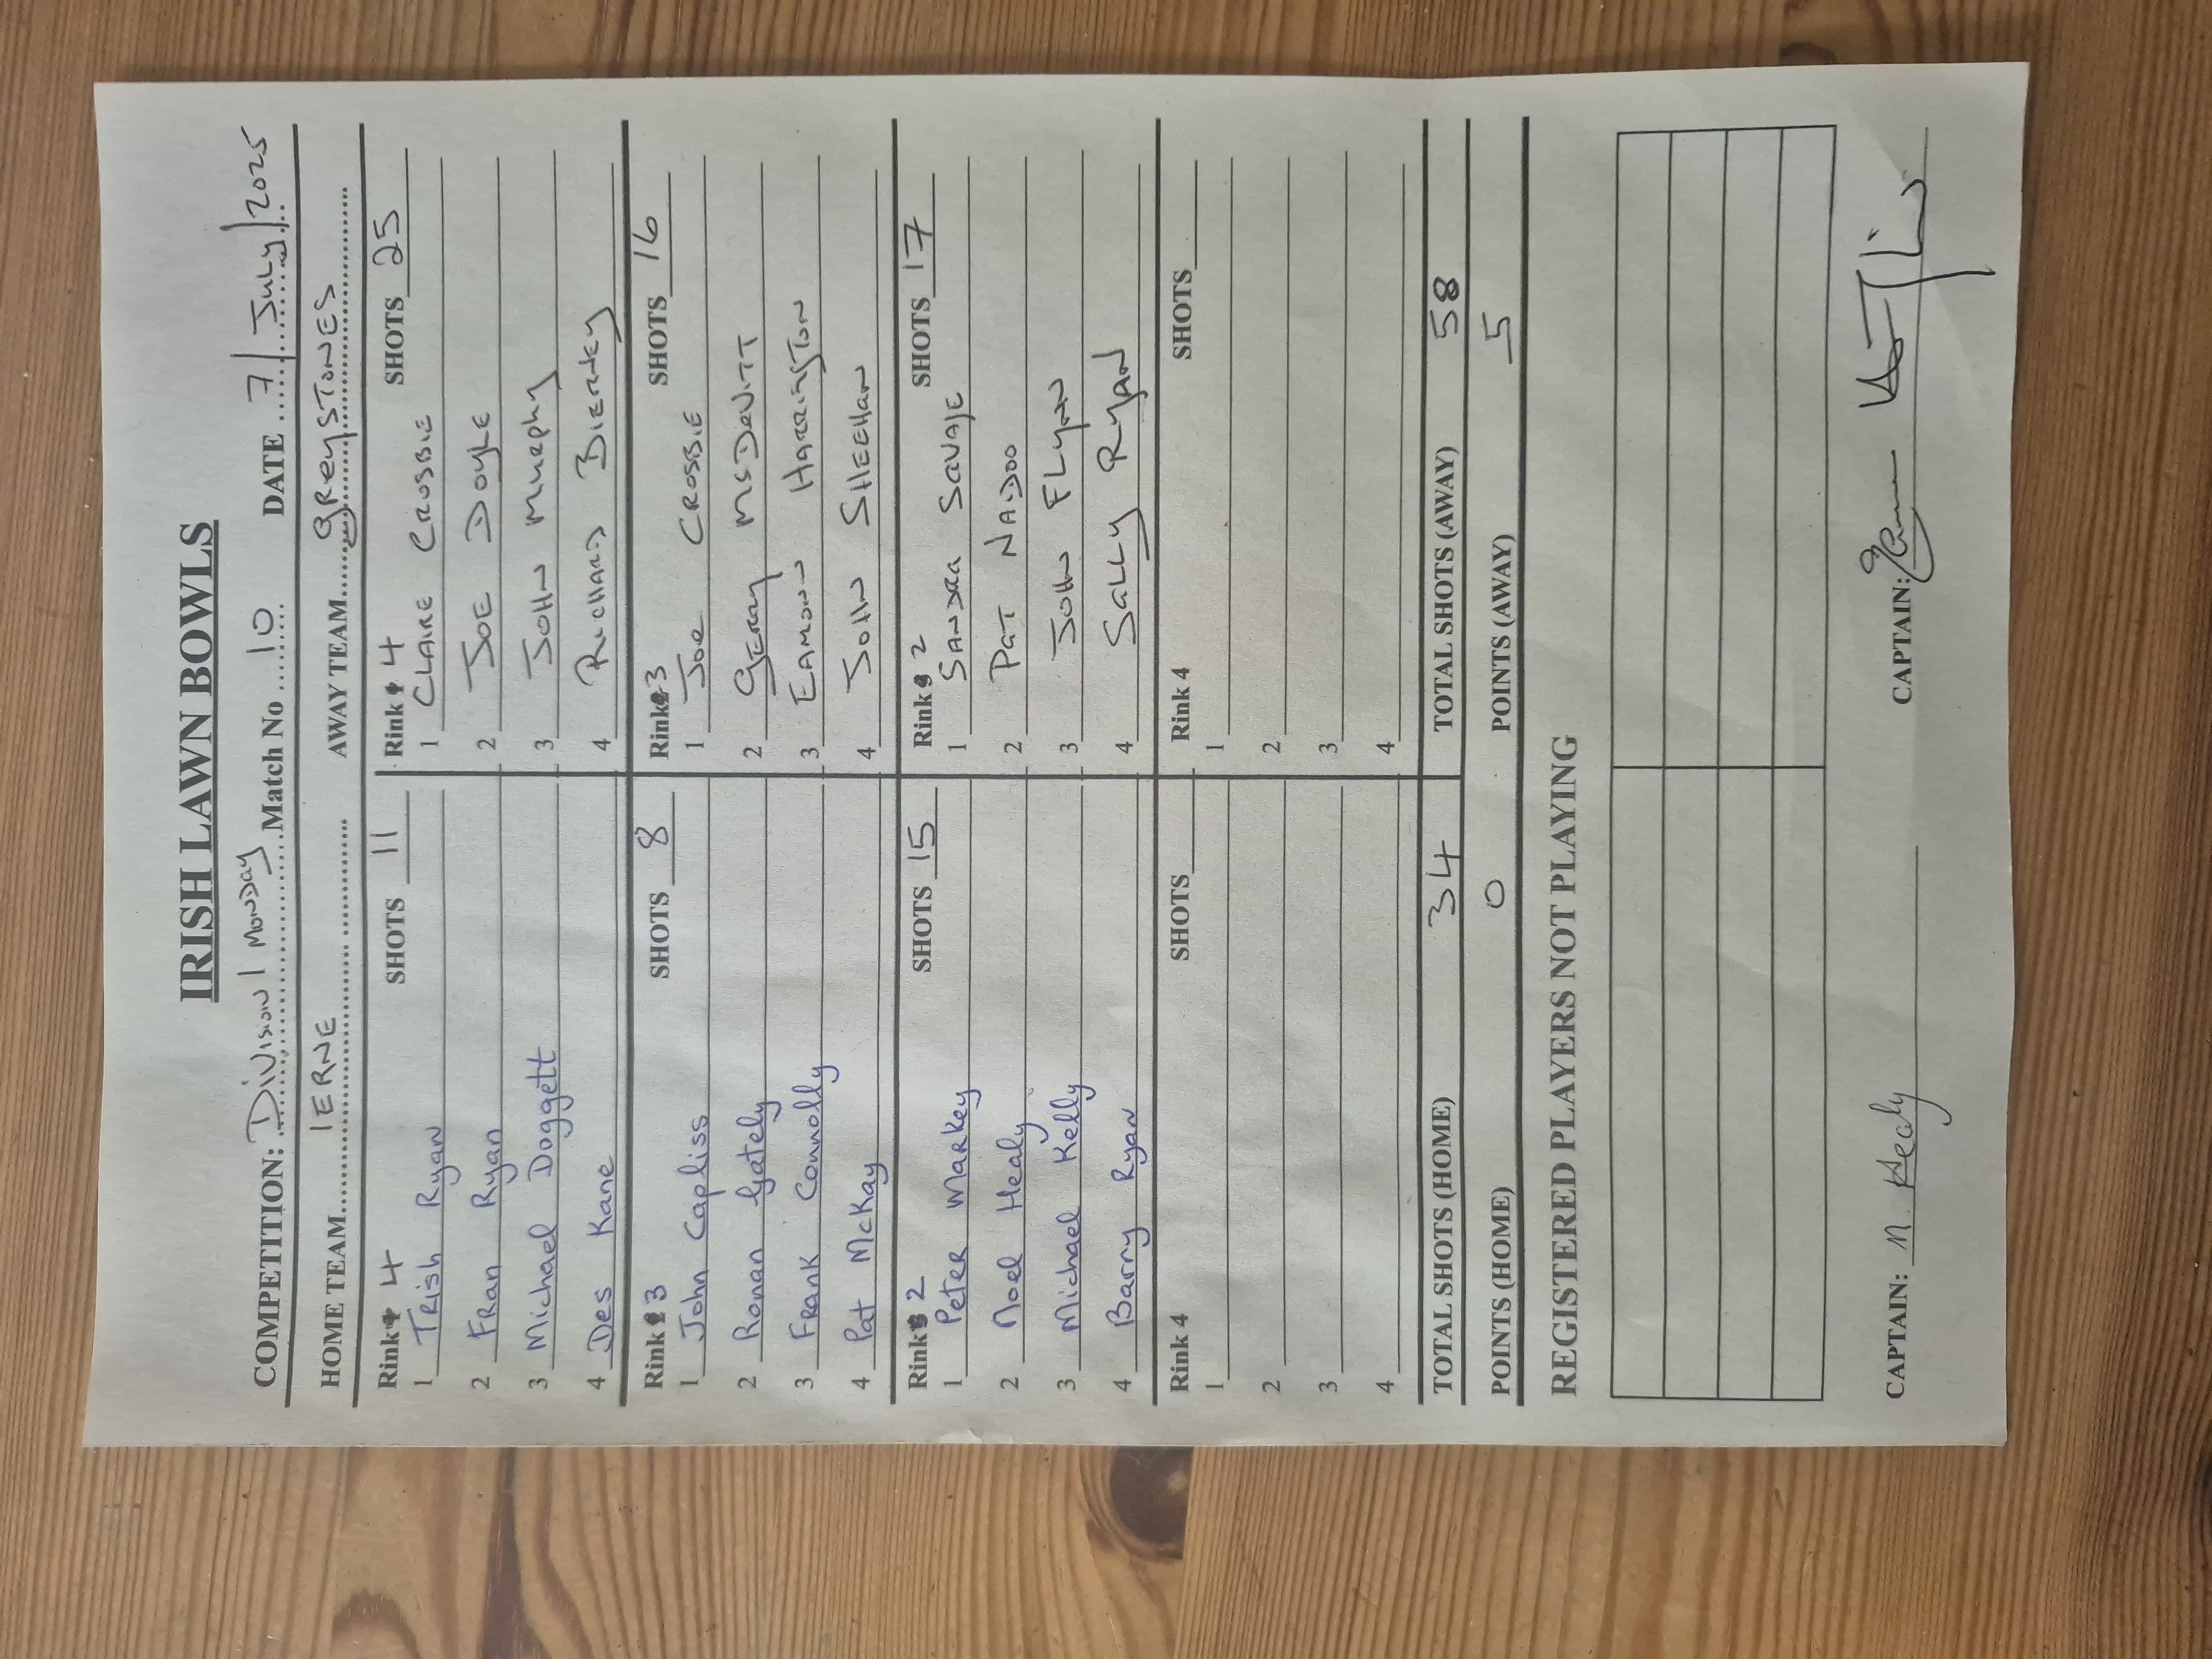 IRISH LAWN BOWLS
COMPETITION: Division 1 Monday Match No 10 DATE 7/July/2025
HOME TEAM IERNE AWAY TEAM GREYSTONES
Rink 4 SHOTS 11 Rink 4 SHOTS 25
1 Trish Ryan 1 CLAIRE CROSBIE
2 Fran Ryan 2 JOE DOYLE
3 Michael Doggett 3 JOHN MURPHY
4 Des Kane 4 RICHARD BIERNEY
Rink 3 SHOTS 8 Rink 3 SHOTS 16
1 John Capliss 1 JOE CROSBIE
2 Ronan Gately 2 GERRY McDEVITT
3 Frank Connolly 3 EAMONN HARRINGTON
4 Pat McKay 4 JOHN SHEEHAN
Rink 2 SHOTS 15 Rink 2 SHOTS 17
1 Peter Markey 1 SANDRA SAVAGE
2 Noel Healy 2 PAT NADOO
3 Michael Kelly 3 JOHN FLYNN
4 Barry Ryan 4 SALLY RYAN
Rink 4 SHOTS Rink 4 SHOTS
1 1
2 2
3 3
4 4
TOTAL SHOTS (HOME) 34 TOTAL SHOTS (AWAY) 58
POINTS (HOME) 0 POINTS (AWAY) 5
REGISTERED PLAYERS NOT PLAYING
CAPTAIN: M Healy CAPTAIN: